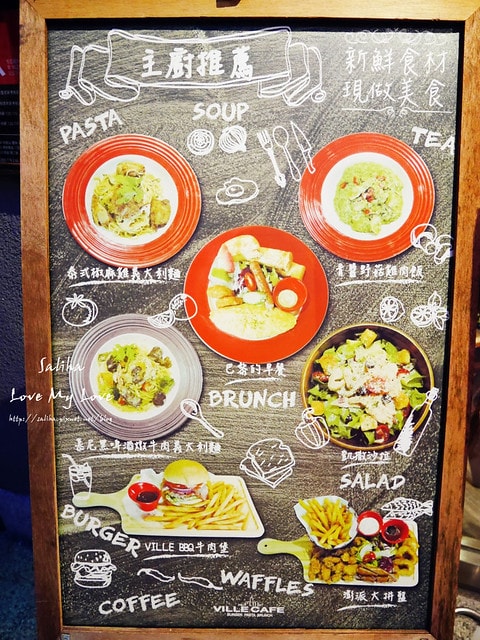 主廚推薦
新鮮食材
現做美食
PASTA
SOUP
TEA
泰式椒麻雞義大利麵
青醬野菇雞肉飯
巴黎的早餐
BRUNCH
Saliha
Love My Love
健尼黑啤酒燉牛肉義大利麵
凱撒沙拉
SALAD
BURGER
VILLE BBQ牛肉堡
WAFFLES
澎派大拼盤
COFFEE
VILLE CAFE
BURGER PASTA BRUNCH